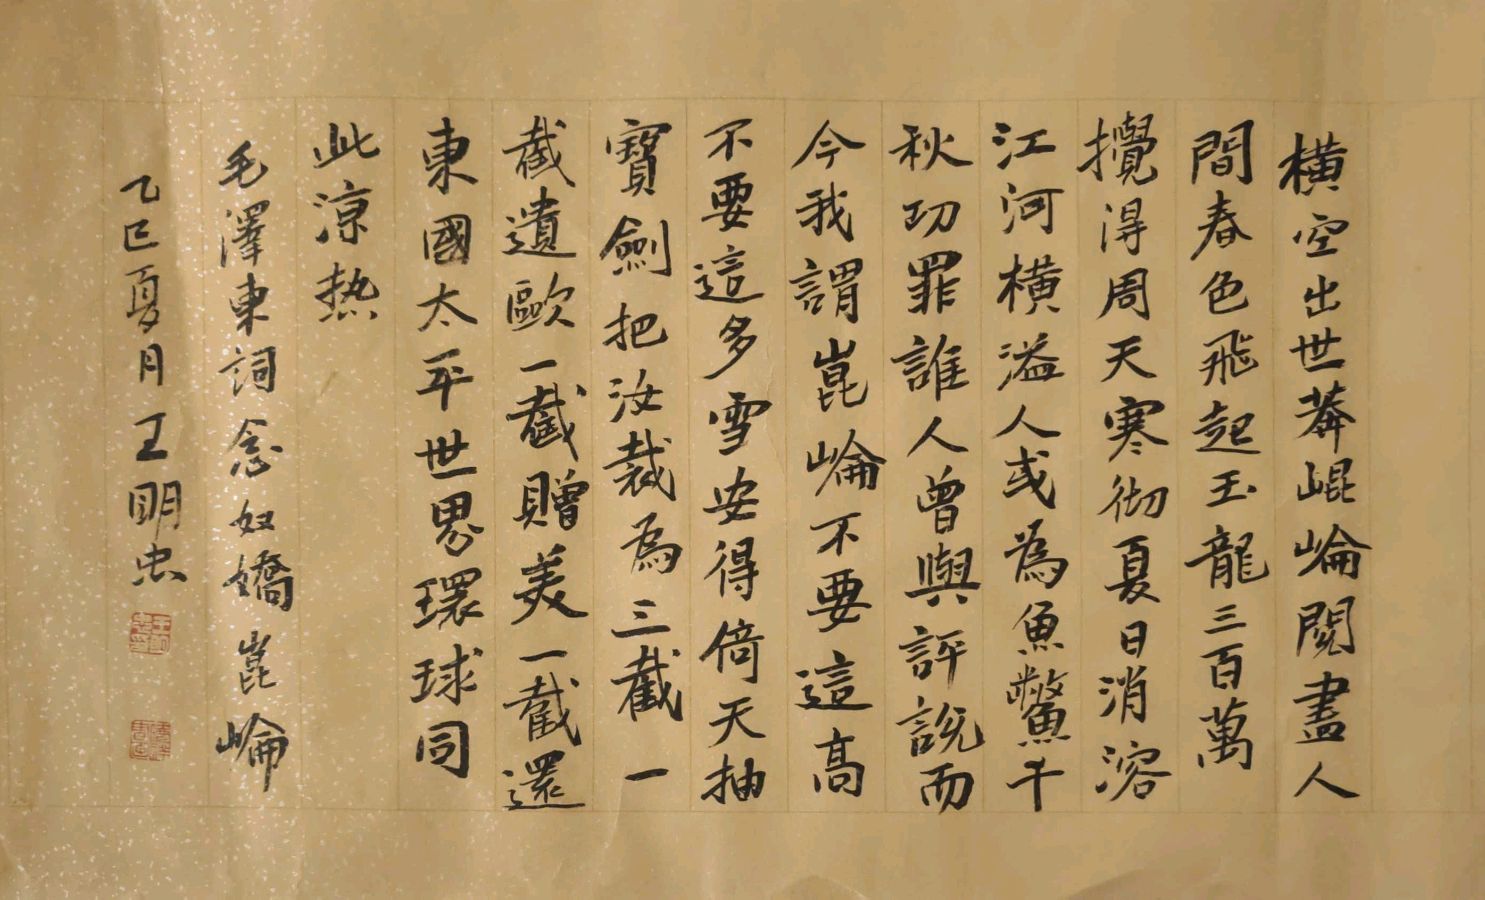 橫空出世莽崐崘閱盡人
間春色飛起玉龍三百萬
攪得周天寒彻夏日消溶
江河橫溢人或為魚鱉千
秋功罪誰人曾與評說而
今我謂崑崘不要這高
不要這多雪安得倚天抽
寶劍把汝裁為三截一
截遺歐一截贈美一截還
東國太平世界環球同
此涼热
毛澤東詞念奴嬌崑崘
乙巳夏月王明忠